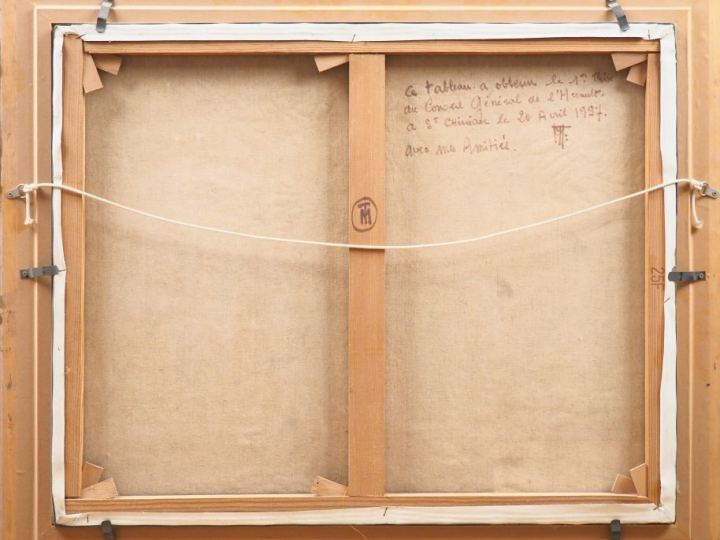 Ce tableau a obtenu le 1er Prix
du Conseil Général de l'Herault.
a St Chinian le 20 Avril 1997.
avec mes Amitiés.
TM
25F